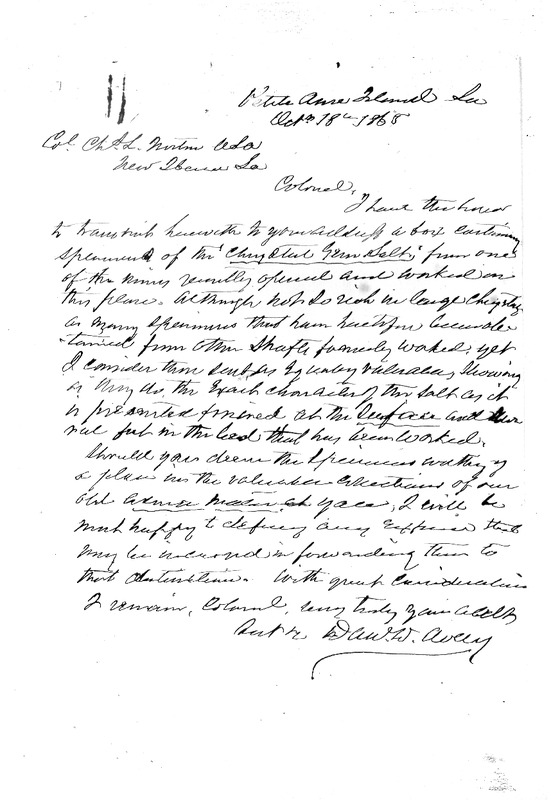 Petite Anse Island La
Octr 18th 1865
Col. Chs. L. Norton USA
New Iberia La
Colonel,
I have the honor
to transmit herewith to your address a box containing
specimens of the "Chrystal Gem Salt," from one
of the mines recently opened and worked on
this place. Although not so rich in large Chrystals
as many specimens that have heretofore been
from other shafts formerly worked, yet
I consider them equally valuable, showing
as they do, the exact character of the salt as it
is presented at the surface and
feet in the bed that has been worked.
Should you deem the specimens worthy of
a place in the valuable collections of our
old at Yale, I will be
most happy to defray any expense that
may be incurred in forwarding them to
that destination. With great consideration
I remain, Colonel, very truly Your obdt
Svt &c D. W. Avery